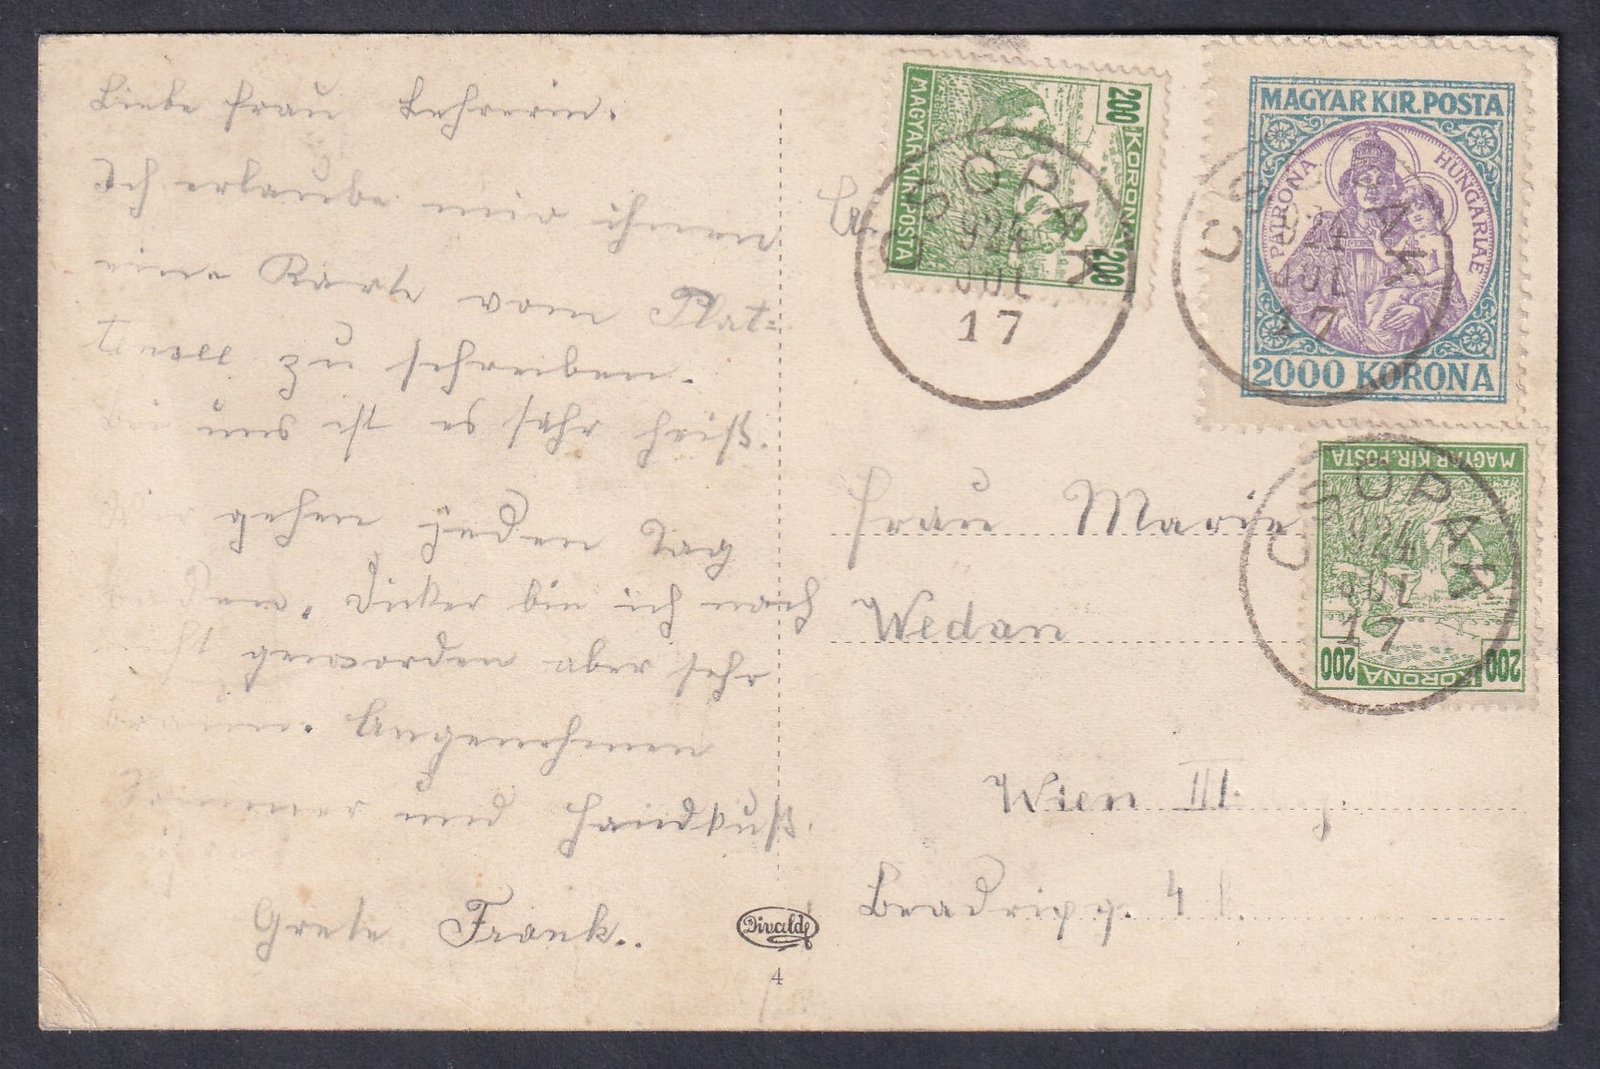 Liebe Frau Lehrerin.
Ich erlaube mir ihnen
eine Karte vom Plat=
tensee zu schreiben.
Bei uns ist es sehr heiß.
Wir gehen jeden Tag
baden. Dicker bin ich noch
nicht geworden aber sehr
braun. Angenehmen
Sommer und Handkuß.
Grete Frank..
Divald
4
MAGYAR KIR. POSTA
200 KORONA 200
CSOPAK
924
JUL
17
MAGYAR KIR. POSTA
PATRONA HUNGARIAE
2000 KORONA
CSOPAK
924
JUL
17
MAGYAR KIR. POSTA
200 KORONA 200
CSOPAK
924
JUL
17
Frau Marie
Wedan
Wien III.
4